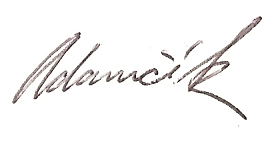 Adamčík